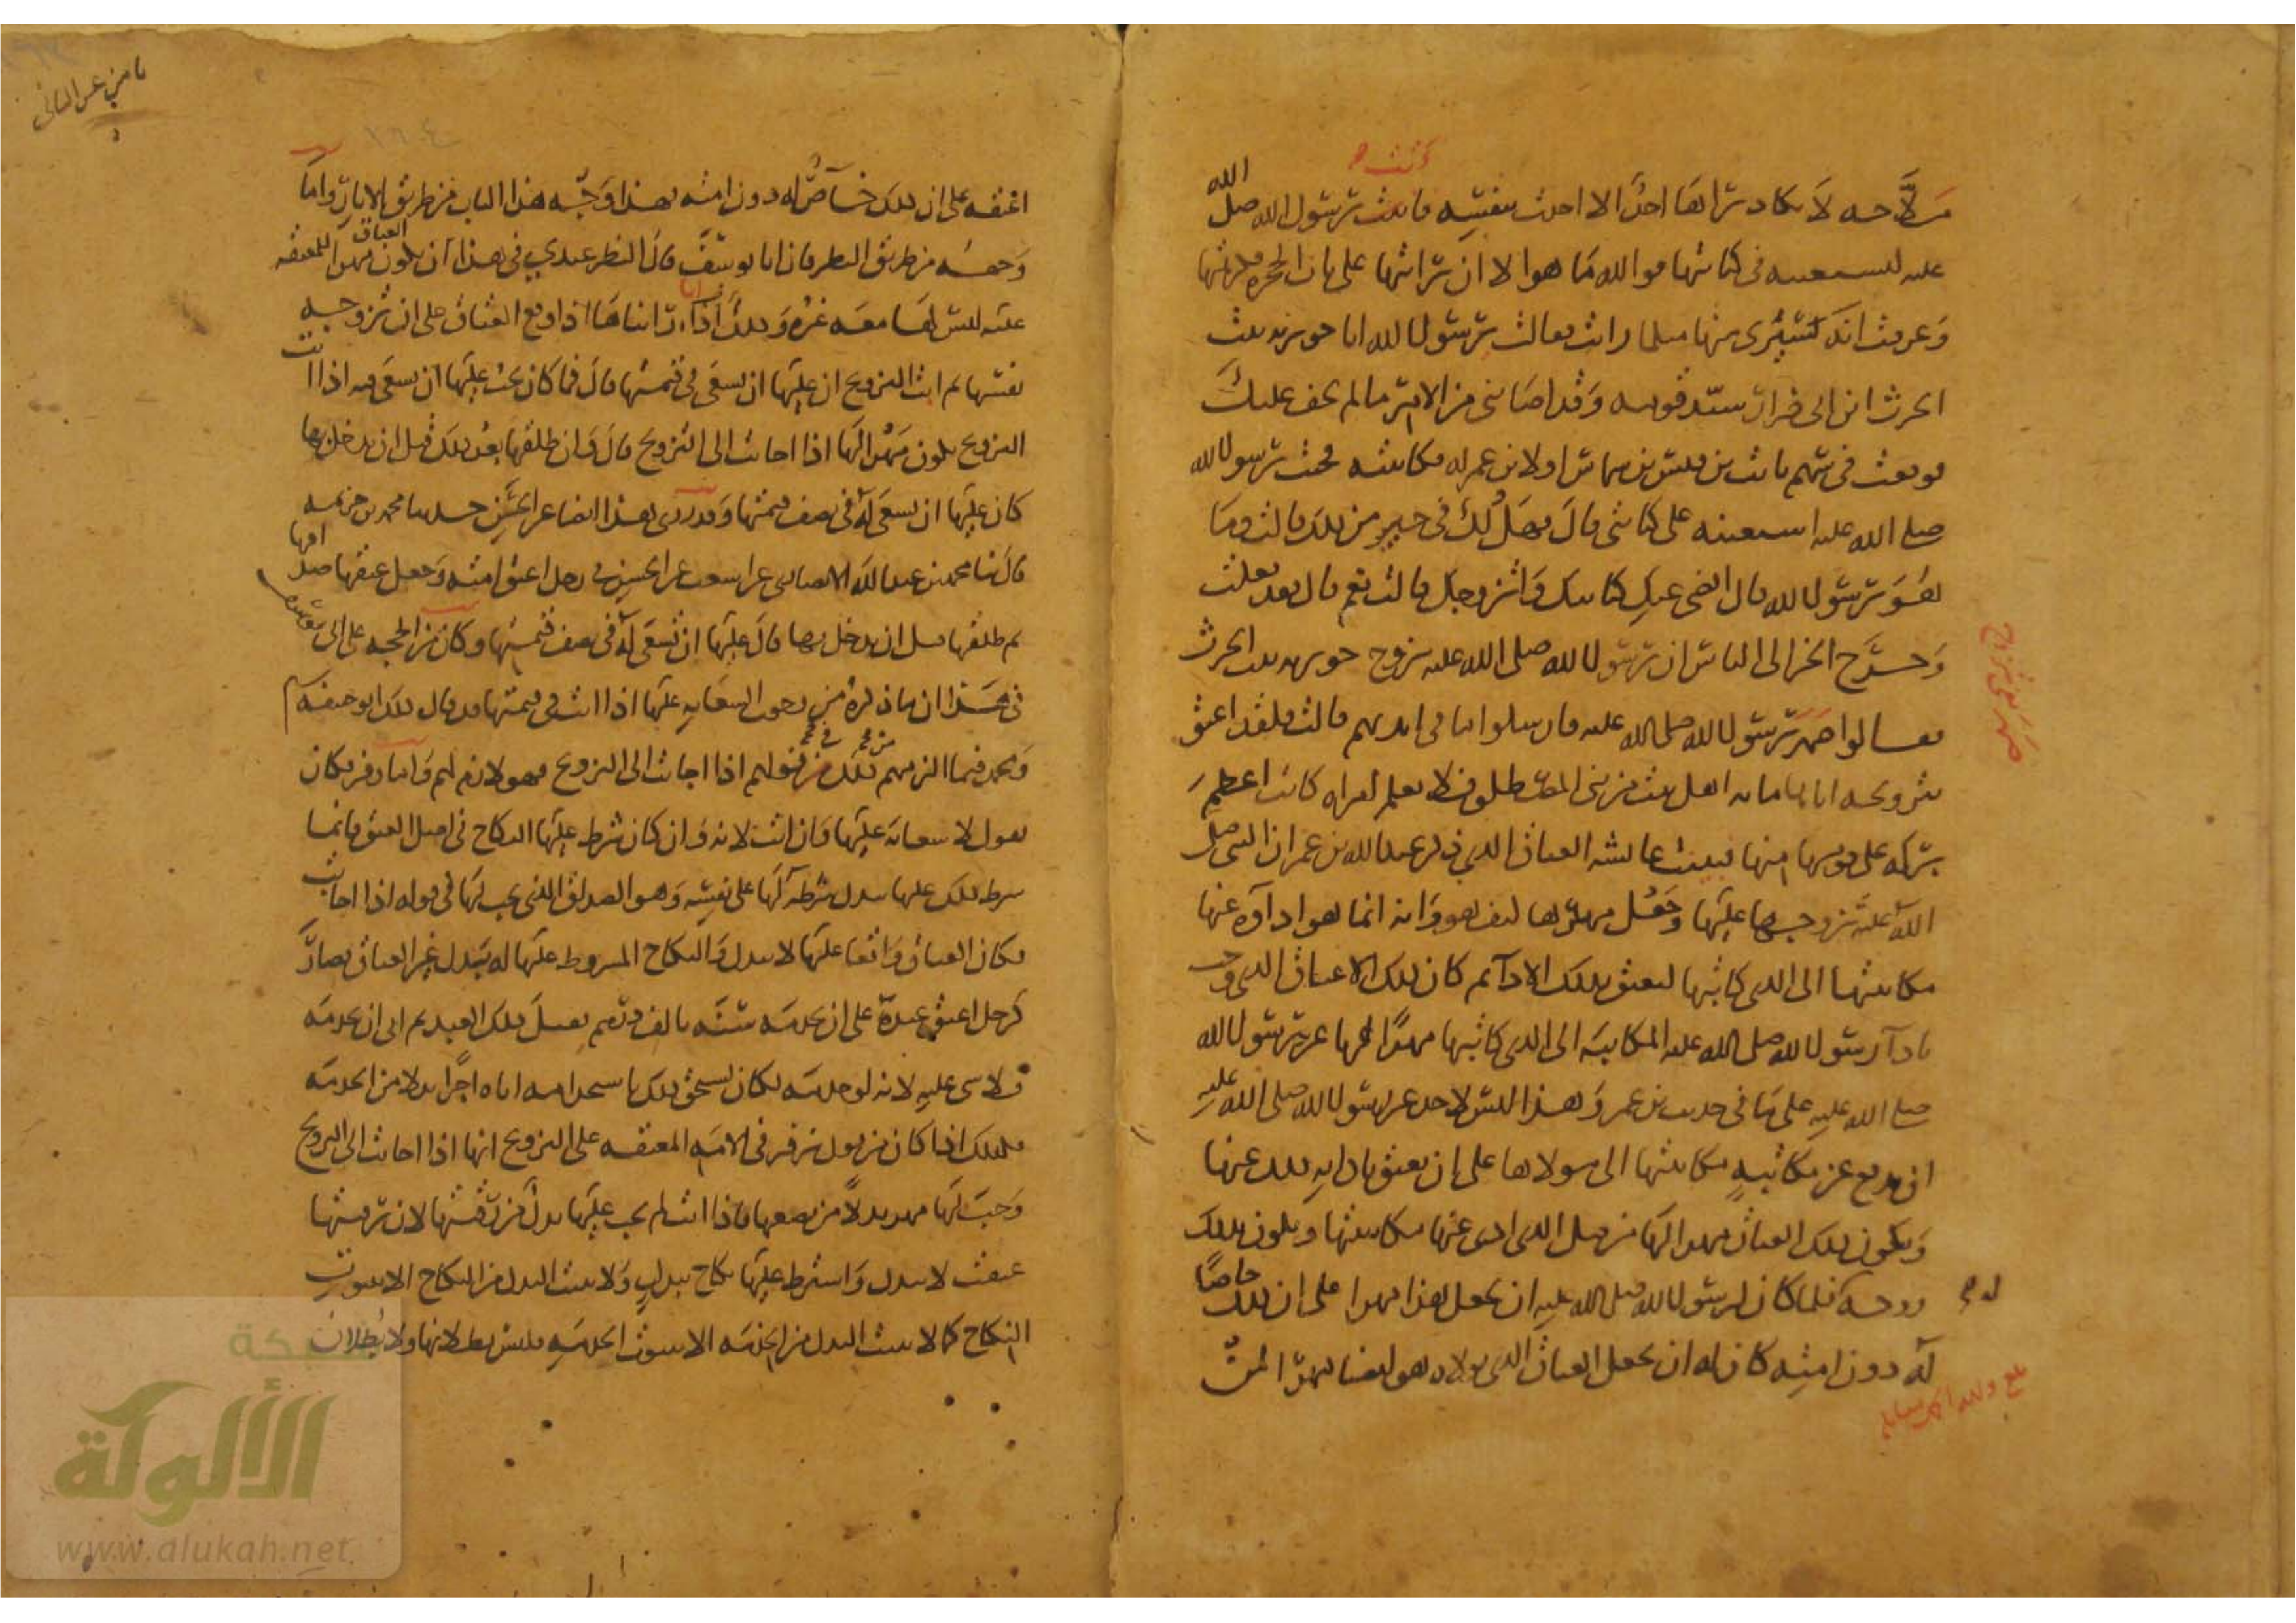 ملاحة لا يكاد يراها احد الا اخذت بنفسه فاتت رسول الله صلى الله
عليه لتستعينه في كتابتها فوالله ما هو الا ان رايتها على باب الحجرة فكرهتها
وعرفت انه سيرى منها مثل ما رايت فقالت يا رسول الله انا جويرية بنت
الحرث ابن ابي ضرار سيد قومه وقد اصابني من الامر ما لم يخف عليك
فوقعت في سهم ثابت بن قيس بن شماس او لابن عم له فكاتبته فجئت رسول الله
صلى الله عليه استعينه على كتابتي قال فهل لك في خير من ذلك قالت وما
هو يا رسول الله قال اقضي عنك كتابتك واتزوجك قالت نعم قال فقد فعلت
وخرج الخبر الى الناس ان رسول الله صلى الله عليه تزوج جويرية بنت الحرث
فقالوا صهر رسول الله صلى الله عليه فارسلوا ما في ايديهم قالت فلقد اعتق
بتزويجه اياها مائة اهل بيت من بني المصطلق فلا نعلم امراة كانت اعظم
بركة على قومها منها فبينت عائشة العتاق الذي ذكر عبد الله بن عمر ان النبي صلى
الله عليه تزوجها عليه وجعل مهرها كيف هو وانه انما هو اداؤه عنها
مكاتبتها الى الذي كاتبها لتعتق بذلك الادا ثم كان ذلك العتاق الذي وجب
بادا رسول الله صلى الله عليه المكاتبة الى الذي كاتبها مهرا لها عن رسول الله
صلى الله عليه على ما في حديث بن عمر وهذا ليس لاحد غير رسول الله صلى الله عليه
ان يدفع عن مكاتبة مكاتبتها الى مولاها على ان تعتق بادايه ذلك عنها
ويكون ذلك العتاق مهرا لها من قبل الذي ادى عنها مكاتبتها وتكون بذلك
زوجة له فلما كان لرسول الله صلى الله عليه ان يجعل هذا مهرا على ان ذلك خاصا
له دون امته كان له ان يجعل العتاق الذي تولاه هو ايضا مهرا لمن
اعتقه على ان ذلك خاص له دون امته فهذا وجه هذا الباب من طريق الاثار واما
وجهه من طريق النظر فان ابا يوسف قال النظر عندي في هذا ان يكون العتاق مهرا للمعتقة
عليه ليس لها معه غيره وذلك انا رايناها اذا وقع العتاق على ان تزوجه
نفسها ثم ابت التزويج ان عليها ان تسعى في قيمتها قال فما كان يجب عليها ان تسعى فيه اذا ابت
التزويج يكون مهرا لها اذا اجابت الى التزويج قال وان طلقها بعد ذلك قبل ان يدخل بها
كان عليها ان تسعى له في نصف قيمتها وقد روي هذا ايضا عن الحسن حدثنا محمد بن خزيمة
قال ثنا محمد بن عبد الله الانصاري عن اشعث عن الحسن في رجل اعتق امته وجعل عتقها صداقها
ثم طلقها قبل ان يدخل بها قال عليها ان تسعى له في نصف قيمتها وكان من الحجة على ابي يوسف
في هذا ان ما ذكره من وجوب السعاية عليها اذا ابت في قيمتها قد قال ذلك ابو حنيفة
ومحمد فيما الزمهم ذلك من قولهم اذا اجابت الى التزويج فهو لازم لهم واما زفر فكان
يقول لا سعاية عليها وان ابت لانه وان كان شرط عليها النكاح في اصل العتق فانما
شرط ذلك عليها ببدل شرطه لها على نفسه وهو الصداق الذي يجب لها في قوله اذا اجابت
فكان العتاق واقعا عليها لا ببدل والنكاح المشروط عليها له ببدل غير العتاق فصار
كرجل اعتق عبده على ان يخدمه سنة بالف درهم فقبل ذلك العبد ثم ابى ان يخدمه
فلا شي عليه لانه لو خدمه لكان يستحق بذلك باستخدامه اياه اجرا بدلا من الخدمة
فكذلك اذا كان من قول زفر في الامة المعتقة على التزويج انها اذا اجابت الى التزويج
وجبت لها مهر بدلا من بضعها فاذا ابت لم يجب عليها بدل من رقبتها لان رقبتها
عتقت لا ببدل واشترط عليها نكاح ببدل ولا يثبت البدل من النكاح الا بثبوت
النكاح كما لا يثبت البدل من الخدمة الا بثبوت الخدمة فليس بطلانها ولا بطلان
الألوكة
www.alukah.net